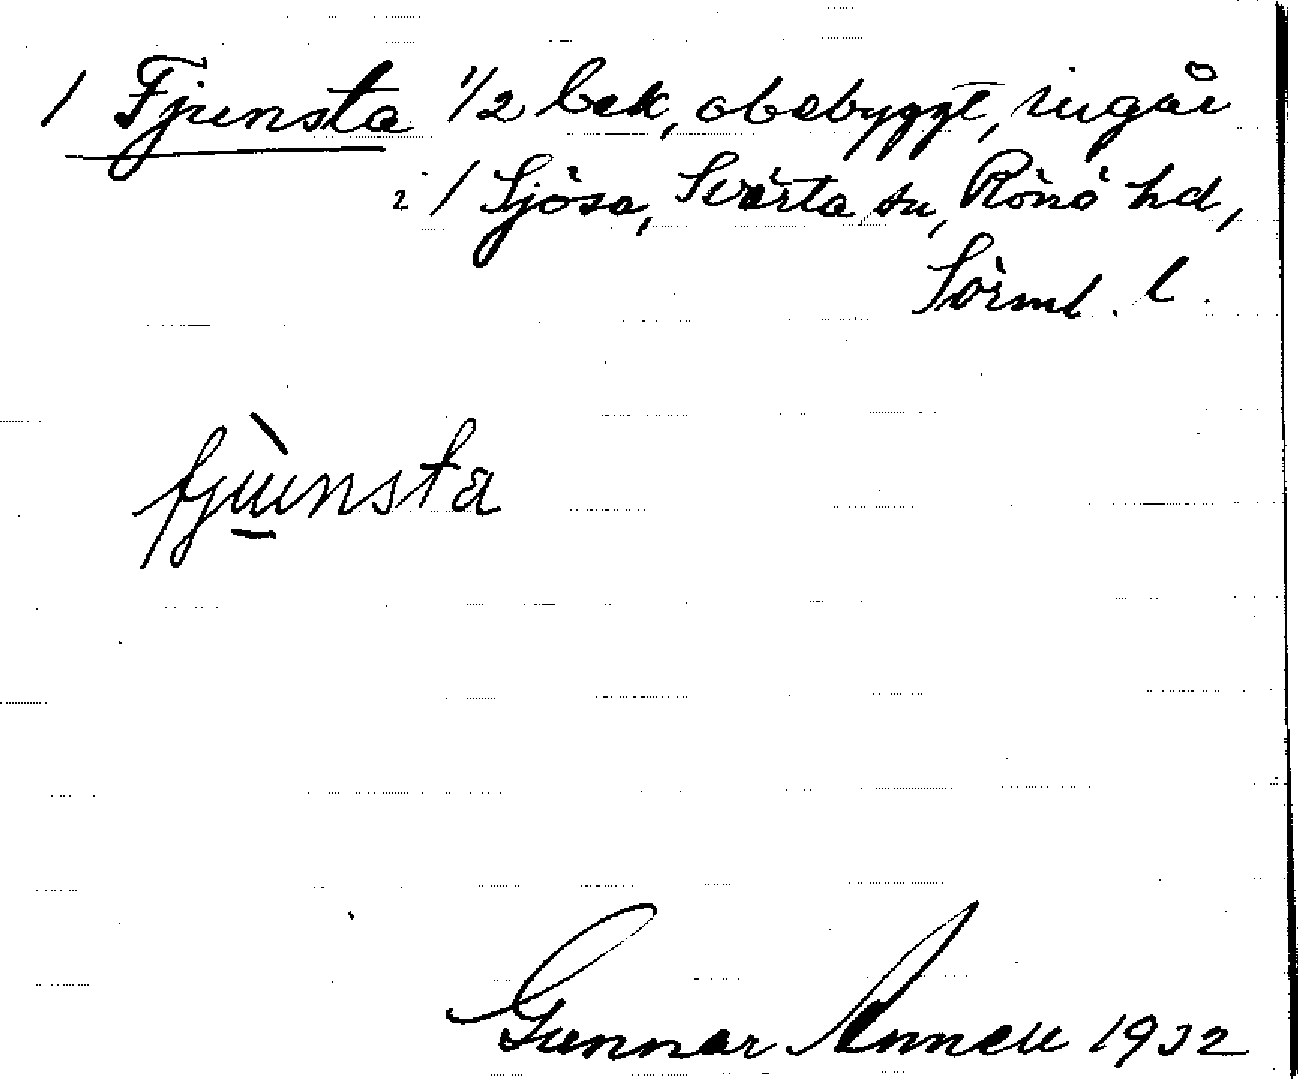 / Fjunsta 1/2 bek, obebyggt, ingår
i / Sjösa, Svärta sn, Rönö hd,
Sörml. l.
fjùnsta
Gunnar Annell 1932